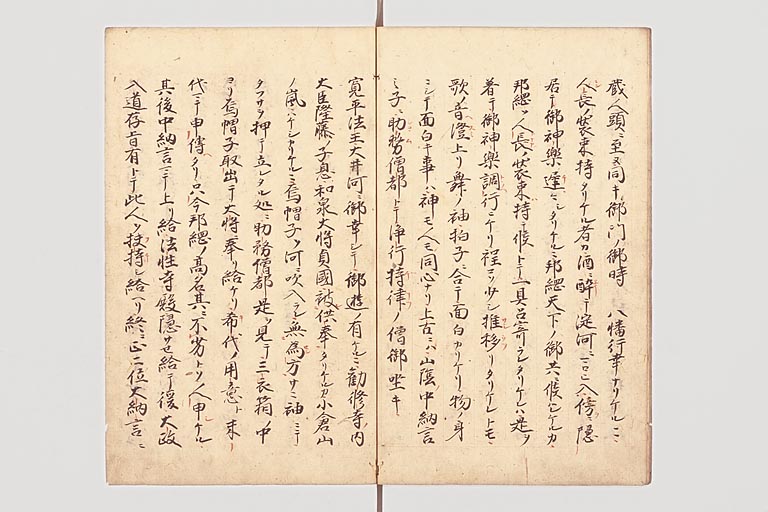 蔵人頭ニ至高キ御門ノ御時 八幡行幸ナリケルニ
人長装束持タリケル者カ酒ニ酔テ淀河ニ入傍ニ隠
居テ御神樂遅ニシタリケルニ邦綱天下ノ御共ニ候ヒケルカ
邦綱ソ人長ノ装束持テ候トテ一具召寄ラレタリケレハ是ヲ
着テ御神樂調行ニケリ程コソ少シ推移リタリケレトモ
歌ノ音澄上リ舞ノ袖拍子ニ合テ面白カリケリ物ノ身
ニシテ面白キ事ハ神モ人モ同心ナリ上古ニハ山蔭中納言
ミ子ニ助務僧都トテ浄行持律ノ僧御坐キ
寛平法王大井河ニ御幸シテ御遊ノ有ケルニ勧修寺ノ内
大臣隆藤ノ子息和泉大将貞國被供奉タリケルカ小倉山
ノ嵐ニケシタリケルニ烏帽子ヲ河ニ吹入ラレ無為方サニ袖ニテ
タフサヲ押テ立レタル処ニ助務僧都是ヲ見テ三衣箱ノ中
ヨリ烏帽子取出テ大将奉リ給ケリ希代ノ用意ト末
代ニテ申傳タリ只今邦綱ノ高名其ニ不劣トソ人申ケル
其後中納言ニテ上リ給法性寺殿隠サセ給テ後大政
入道存旨有トテ此人ヲ扶持シ給ヘリ終ニ正二位大納言ニ